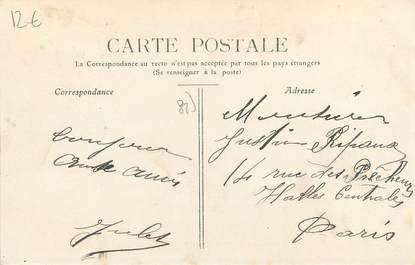 12-€
CARTE POSTALE
La Correspondance au recto n'est pas acceptée par tous les pays étrangers
(Se renseigner à la poste)
Correspondance
Adresse
82)
Monsieur
Justin
14 rue des Prêcheurs
Halles Centrales
Paris
Bonjour
Jules